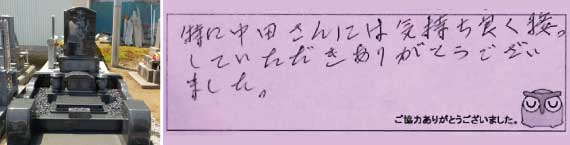 特に中田さんには気持ち良く接
していただきありがとうござい
ました。
ご協力ありがとうございました。